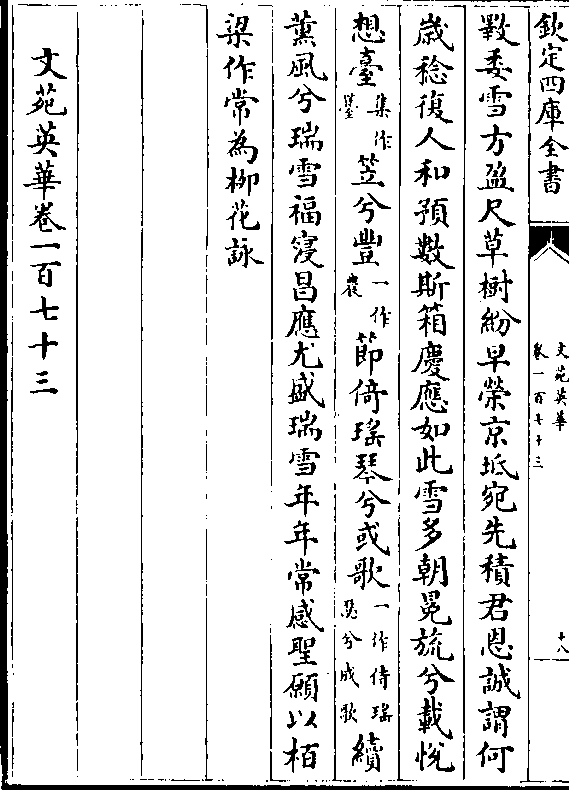 欽定四庫全書
文苑英華
卷一百七十三
十八
數委雪方盈尺草樹紛早榮京坻宛先積君恩誠謂何
歲稔復人和預數斯箱慶應如此雪多朝冕旒兮載悅
想臺集作簦笠兮豐一作農節倚瑤琴兮或歌一作倚瑤瑟兮成歌續
薰風兮瑞雪福寖昌應尤盛瑞雪年年常感聖願以柏
梁作常為柳花詠
文苑英華卷一百七十三